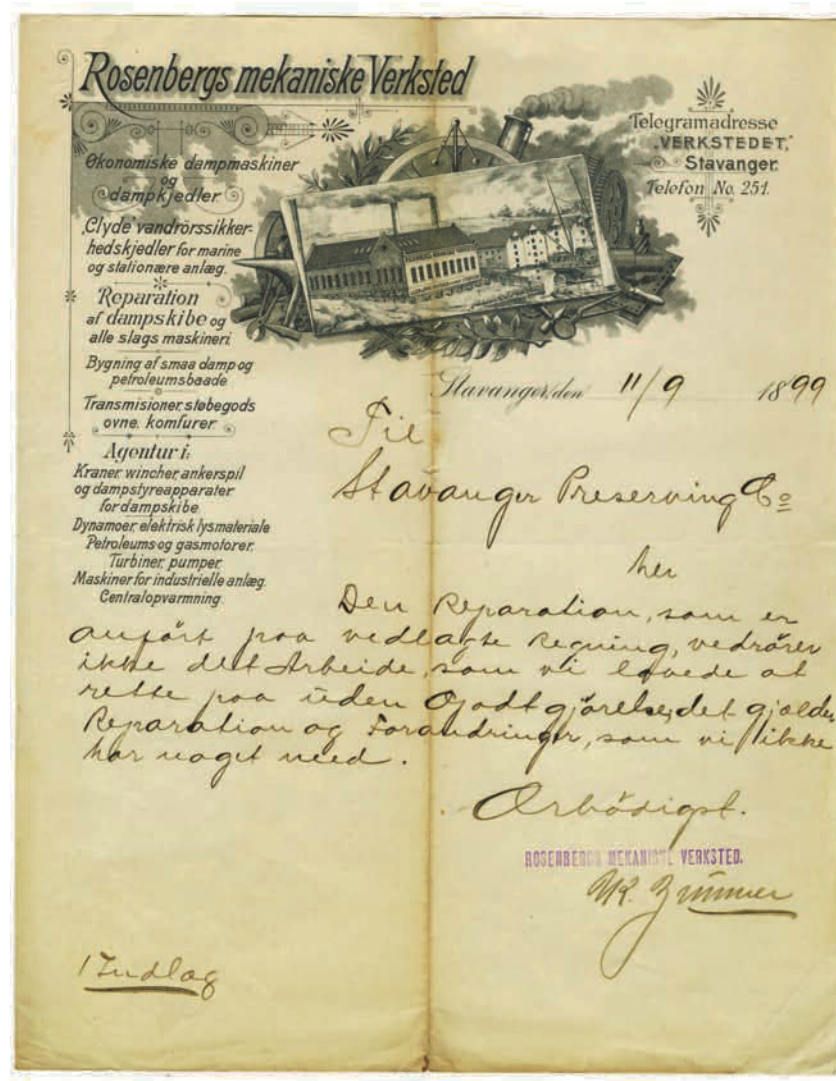 Rosenbergs mekaniske Verksted
Økonomiske dampmaskiner
og
dampkjedler
"Clyde" vandrörssikker-
hedskjedler for marine
og stationære anlæg.
Reparation
af dampskibe og
alle slags maskineri
Bygning af smaa damp og
petroleumsbaade
Transmisioner, støbegods
ovne, komfurer
Agentur i:
Kraner, wincher, ankerspil
og dampstyreapparater
for dampskibe
Dynamoer, elektrisk lysmateriale
Petroleums og gasmotorer.
Turbiner, pumper.
Maskiner for industrielle anlæg.
Centralopvarmning.
Telegramadresse
"VERKSTEDET,"
Stavanger.
Telefon No. 251.
Stavanger, den 11/9 1899
Til
Stavanger Preserving Co
her
Den Reparation, som er
anført paa vedlagte Regning, vedrører
ikke det Arbeide, som vi lovede at
rette paa uden Godtgjörelse, det gjælder
Reparation og Forandringer, som vi ikke
har noget med.
Ærbödigst.
ROSENBERGS MEKANISKE VERKSTED.
Zimmer
1 Indlæg